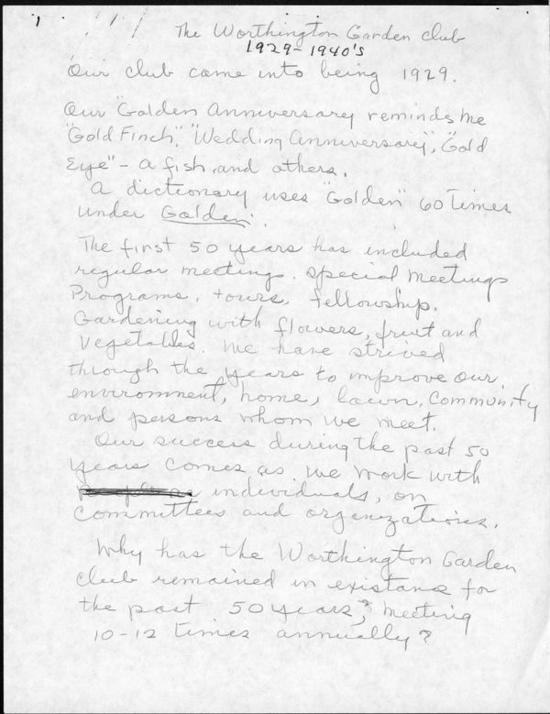 The Worthington Garden Club
1929-1940's
Our club came into being 1929.
Our "Golden Anniversary reminds me
"Gold Finch", "Wedding Anniversary", "Gold
Eye" - a fish and others.
A dictionary uses "Golden" 60 times
under Golden.
The first 50 years has included
regular meetings, special meetings
Programs, tours, fellowship.
Gardening with flowers, fruit and
Vegetables. We have strived
through the years to improve our
environment, home, lawn, community
and persons whom we meet.
Our success during the past 50
years comes as we work with
individuals, on
committees and orgenizations.
Why has the Worthington Garden
Club remained in existans for
the past 50 years, meeting
10-12 times annually?